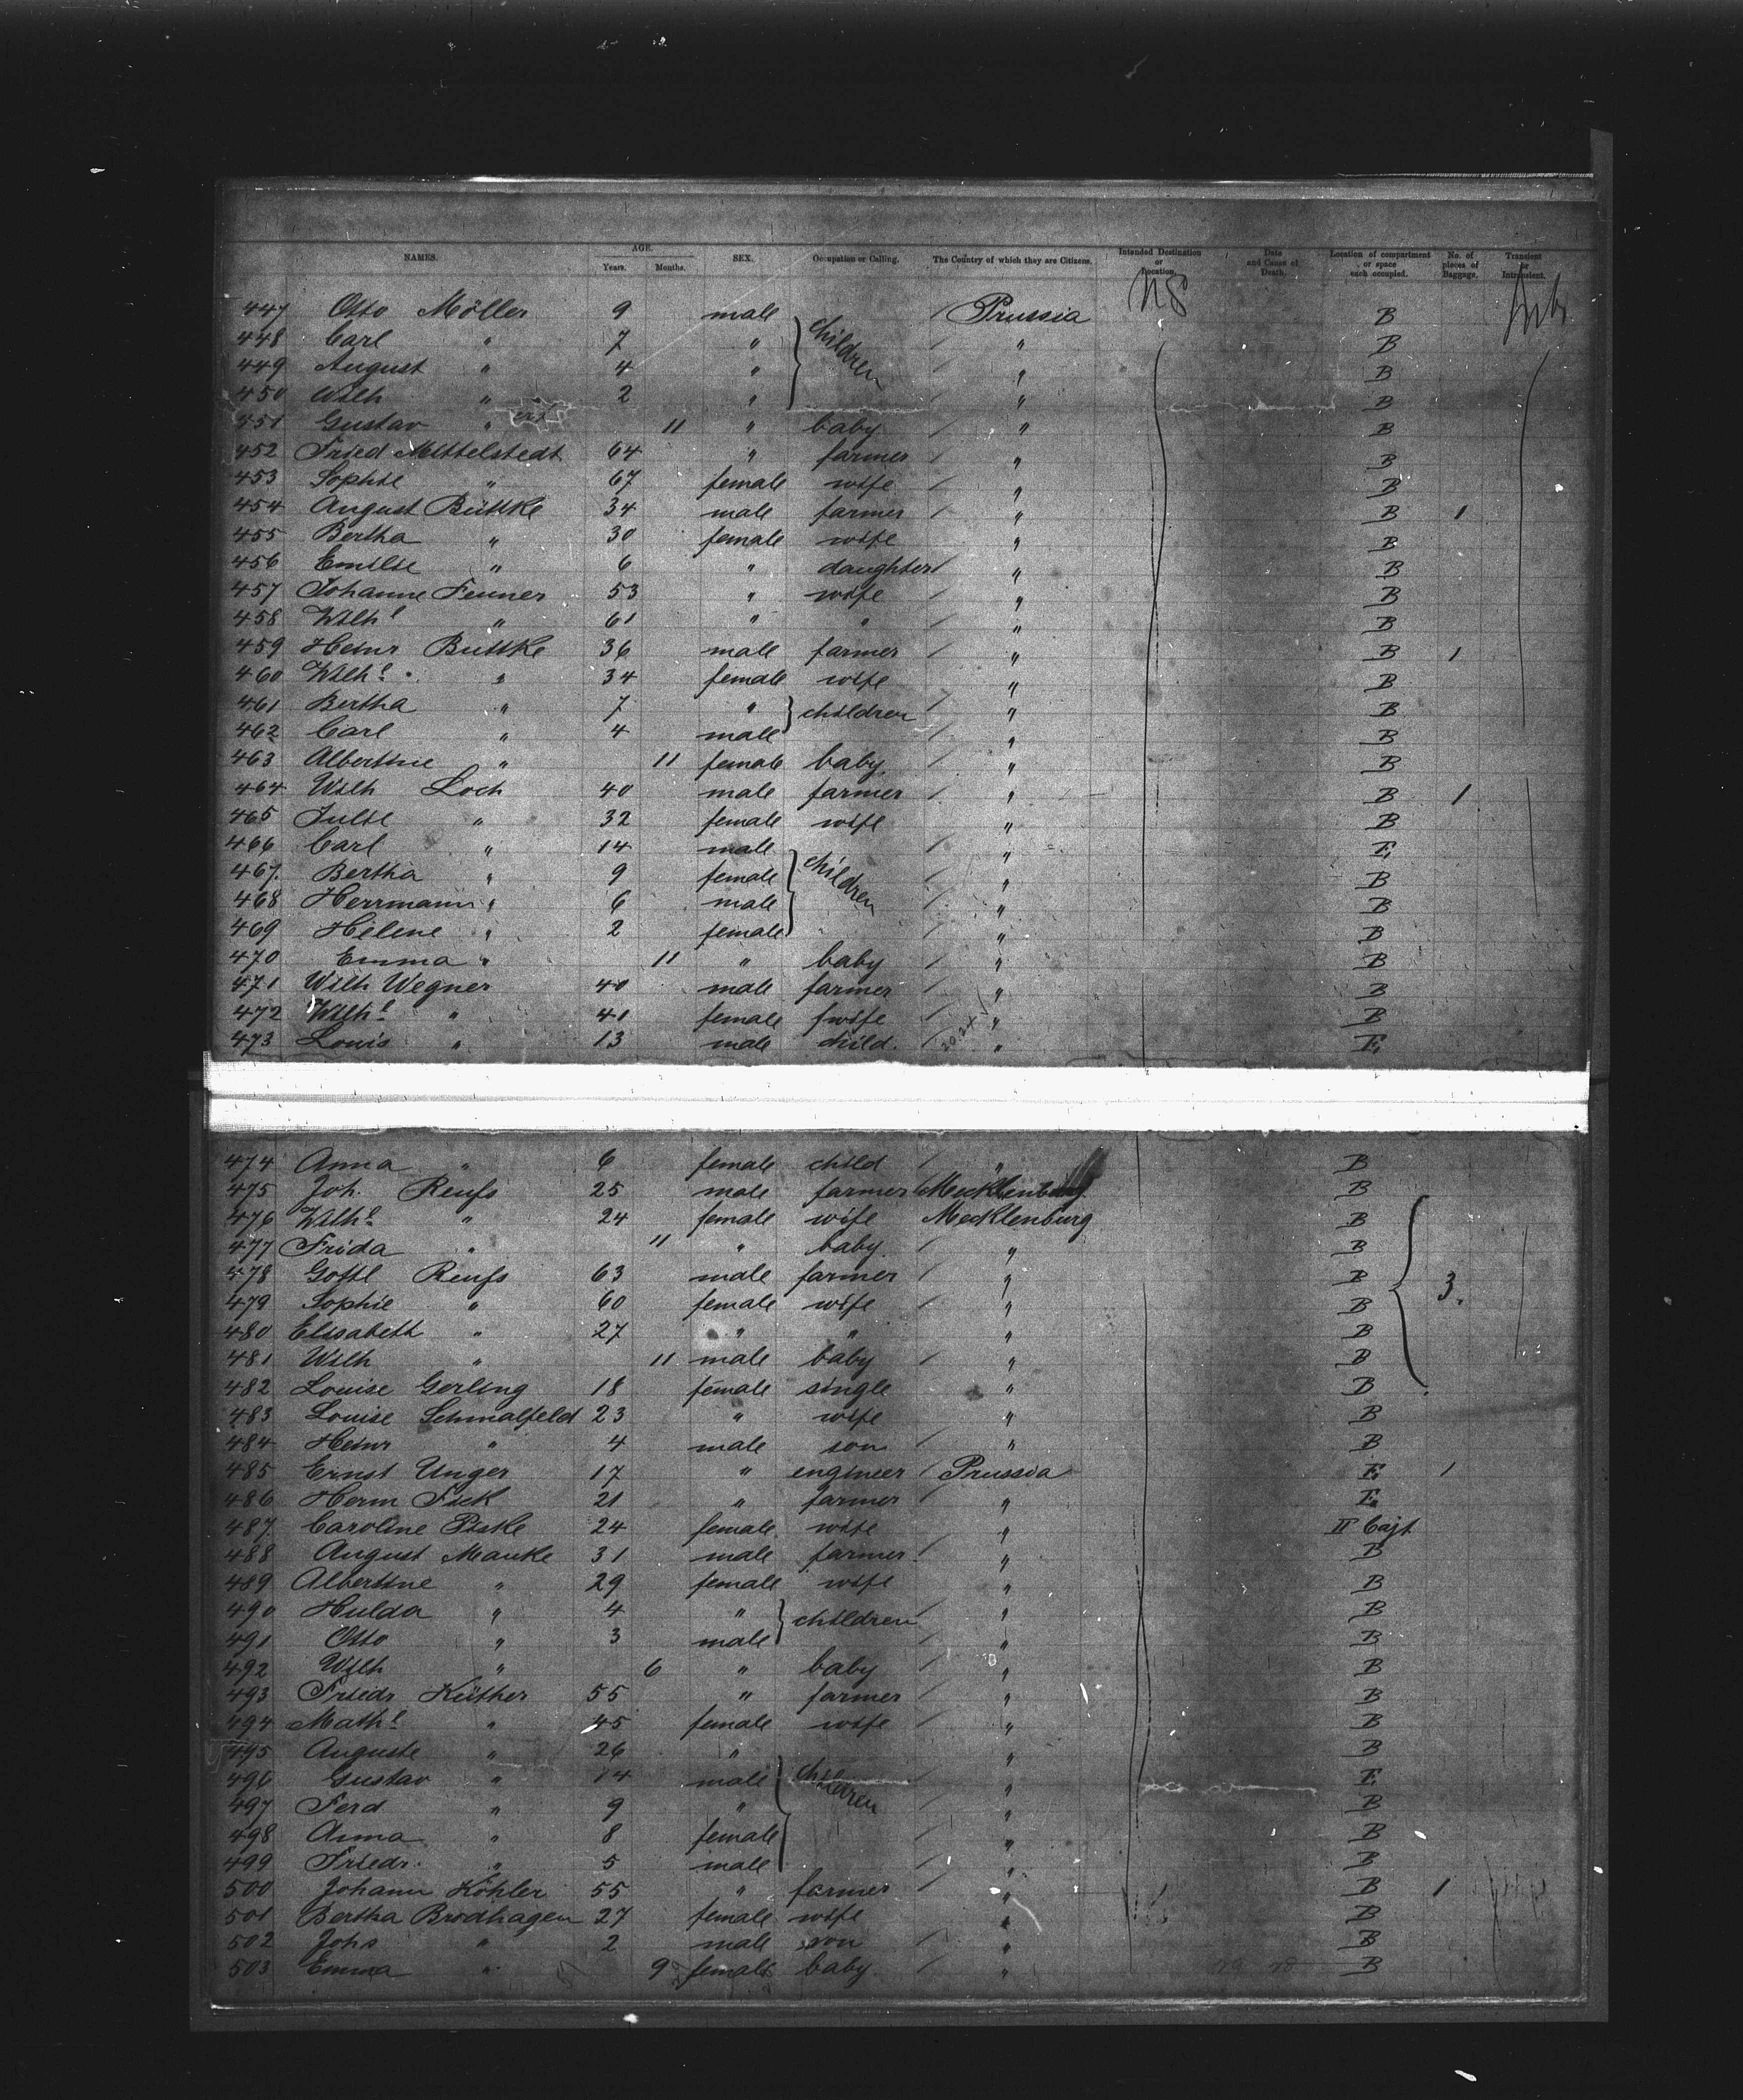 NAMES. AGE. Years. Months. SEX. Occupation or Calling. The Country of which they are Citizens. Intended Destination or Location. Date and Cause of Death. Location of compartment or space each occupied. No. of pieces of Baggage. Transient or Intransient.
447 Otto Möller 9 male children / Prussia US B
448 Carl " 7 " / " B
449 August " 4 " / " B
450 Wilh " 2 " / " B
451 Gustav " 11 " baby / " B
452 Fried Mittelstedt 64 " farmer / " B
453 Sophie " 67 female wife / " B
454 August Büttke 34 male farmer / " B 1
455 Bertha " 30 female wife " B
456 Emilie " 6 " daughter / " B
457 Johanne Fenner 53 " wife / " B
458 Wilhe " 61 " " " B
459 Heinr Büttke 36 male farmer / " B 1
460 Wilhe " 34 female wife " B
461 Bertha " 7 " children / " B
462 Carl " 4 male / " B
463 Albertine " 11 female baby / " B
464 Wilh Loch 40 male farmer / " B 1
465 Julie " 32 female wife " B
466 Carl " 14 male children / " E
467 Bertha " 9 female / " B
468 Herrmann " 6 male / " B
469 Helene " 2 female / " B
470 Emma " 11 " baby / " B
471 Wilh Wegner 40 male farmer / " B
472 Wilhe " 41 female wife / " B
473 Louis " 13 male child / " E
474 Anna " 6 female child / " B
475 Joh. Reufs 25 male farmer / Mecklenburg B
476 Wilhe " 24 female wife Mecklenburg B
477 Frida " 11 " baby / " B
478 Gottl Reufs 63 male farmer / " B 3.
479 Sophie " 60 female wife / " B
480 Elisabeth " 27 " " " B
481 Wilh " 11 male baby / " B
482 Louise Gerling 18 female single " B
483 Louise Schmalfeld 23 " wife " B
484 Heinr " 4 male son / " B
485 Ernst Unger 17 " engineer / Prussia E 1
486 Herm Fick 21 " farmer / " E
487 Caroline Piske 24 female wife / " II Cajt
488 August Manke 31 male farmer / " B
489 Albertine " 29 female wife " B
490 Hulda " 4 " children / " B
491 Otto " 3 male / " B
492 Wilh " 6 " baby / " B
493 Friedr Küther 55 " farmer / " B
494 Mathe " 45 female wife / " B
495 Auguste " 26 " " B
496 Gustav " 14 male children " E
497 Ferd " 9 " / " B
498 Anna " 8 female / " B
499 Friedr. " 5 male / " B
500 Johann Köhler 55 " farmer / " B 1
501 Bertha Brodhagen 27 female wife " B
502 Johs " 2 male son / " B
503 Emma " 9 female baby / " B